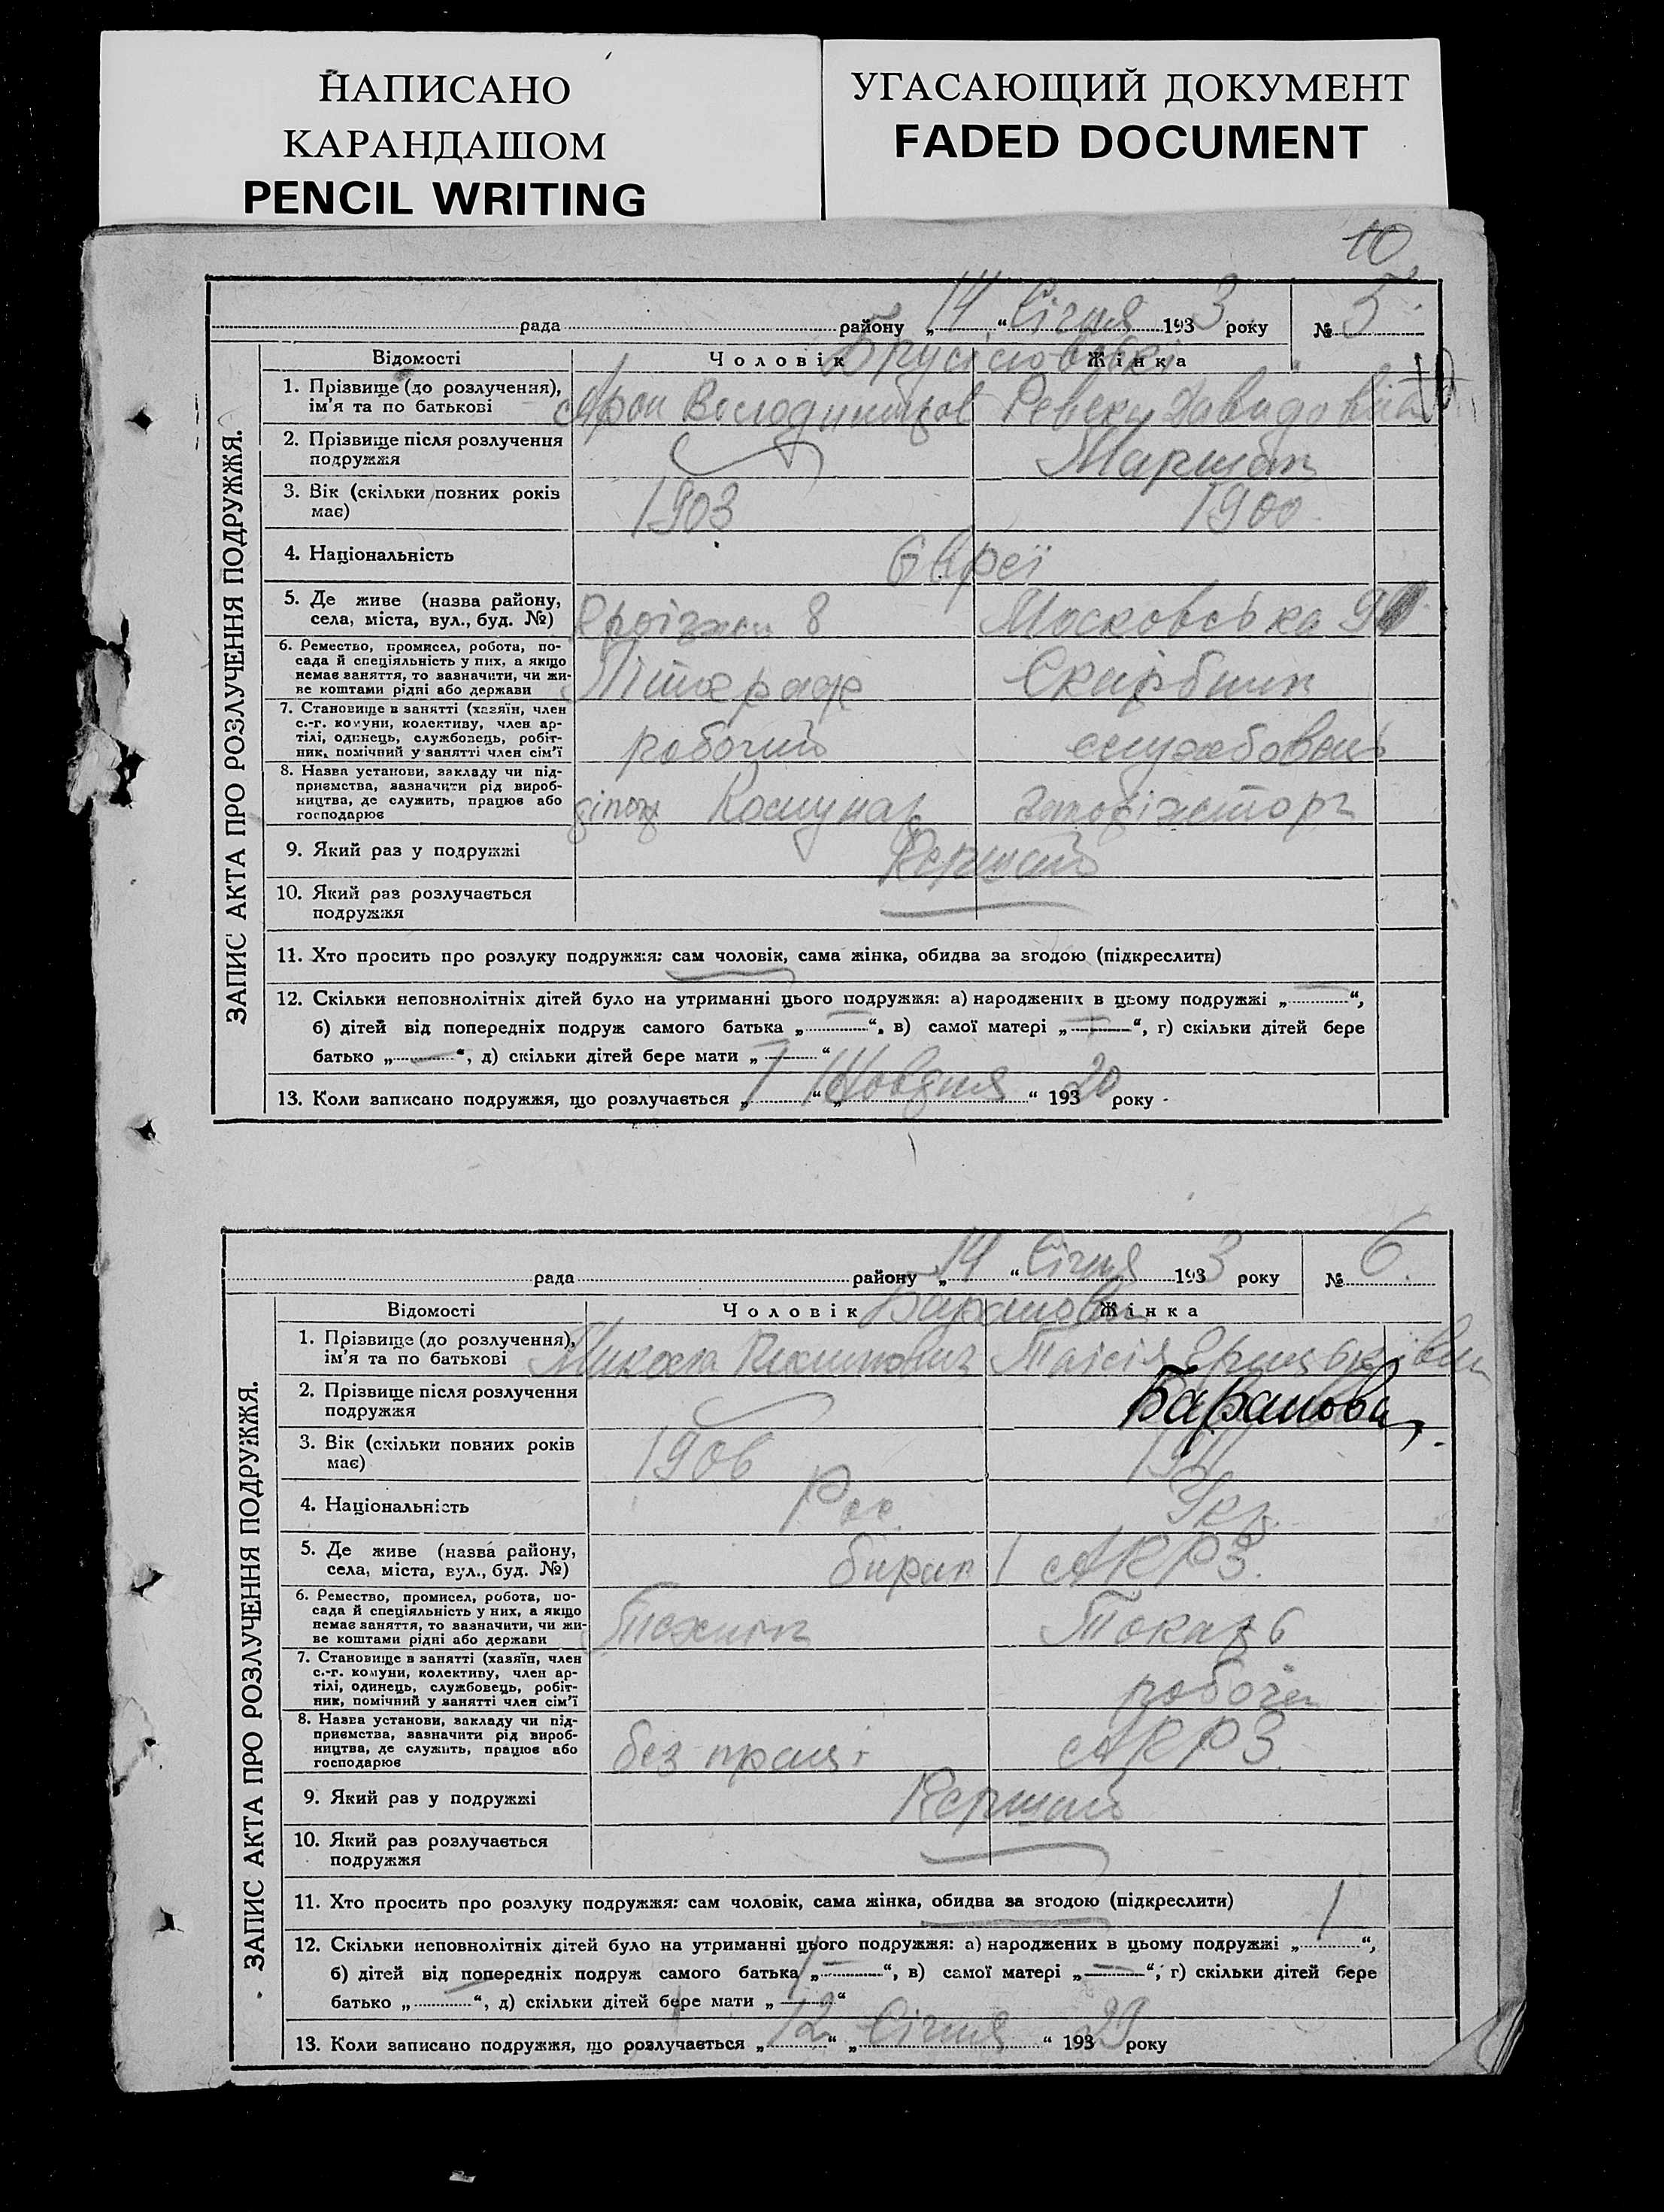 НАПИСАНО
КАРАНДАШОМ
PENCIL WRITING
УГАСАЮЩИЙ ДОКУМЕНТ
FADED DOCUMENT
10
ЗАПИС АКТА ПРО РОЗЛУЧЕННЯ ПОДРУЖЖЯ.
рада району „14 “ Січня 1933 року № 5
Відомості Чоловік Жінка
Брусіловські
1. Прізвище (до розлучення), ім'я та по батькові Арон Ревека Давидовна
2. Прізвище після розлучення подружжя Маршак
3. Вік (скільки повних років має) 1903 1900
4. Національність Євреї
5. Де живе (назва району, села, міста, вул., буд. №) 8 Московська
6. Ремество, промисел, робота, по-
сада й спеціяльність у них, а якщо
немає заняття, то зазначити, чи жи-
ве коштами рідні або держави Літограф
7. Становище в занятті (хазяїн, член
с.-г. комуни, колективу, член ар-
тілі, одинець, службовець, робіт-
ник, помічний у занятті член сім'ї робочий службовець
8. Назва установи, закладу чи під-
приємства, зазначити рід вироб-
ництва, де служить, працює або
господарює Комунар
9. Який раз у подружжі Перший
10. Який раз розлучається
подружжя
11. Хто просить про розлуку подружжя: сам чоловік, сама жінка, обидва за згодою (підкреслити)
12. Скільки неповнолітніх дітей було на утриманні цього подружжя: а) народжених в цьому подружжі „— “,
б) дітей від попередніх подруж самого батька „— “, в) самої матері „— “, г) скільки дітей бере
батько „— “, д) скільки дітей бере мати „— “
13. Коли записано подружжя, що розлучається „1 “ „Жовтня “ 19320 року
ЗАПИС АКТА ПРО РОЗЛУЧЕННЯ ПОДРУЖЖЯ.
рада району „14 “ Січня 1933 року № 6
Відомості Чоловік Жінка
Баранови
1. Прізвище (до розлучення), ім'я та по батькові Микола Таісія
2. Прізвище після розлучення подружжя Баранова
3. Вік (скільки повних років має) 1906 1911
4. Національність Рос. Укр.
5. Де живе (назва району, села, міста, вул., буд. №) барак 1 АКРЗ.
6. Ремество, промисел, робота, по-
сада й спеціяльність у них, а якщо
немає заняття, то зазначити, чи жи-
ве коштами рідні або держави Технік Токарь
7. Становище в занятті (хазяїн, член
с.-г. комуни, колективу, член ар-
тілі, одинець, службовець, робіт-
ник, помічний у занятті член сім'ї робоча
8. Назва установи, закладу чи під-
приємства, зазначити рід вироб-
ництва, де служить, працює або
господарює без праці АКРЗ.
9. Який раз у подружжі Перший
10. Який раз розлучається
подружжя
11. Хто просить про розлуку подружжя: сам чоловік, сама жінка, обидва за згодою (підкреслити)
12. Скільки неповнолітніх дітей було на утриманні цього подружжя: а) народжених в цьому подружжі „1 “,
б) дітей від попередніх подруж самого батька „— “, в) самої матері „— “, г) скільки дітей бере
батько „— “, д) скільки дітей бере мати „1 “
13. Коли записано подружжя, що розлучається „12 “ „Січня “ 19329 року